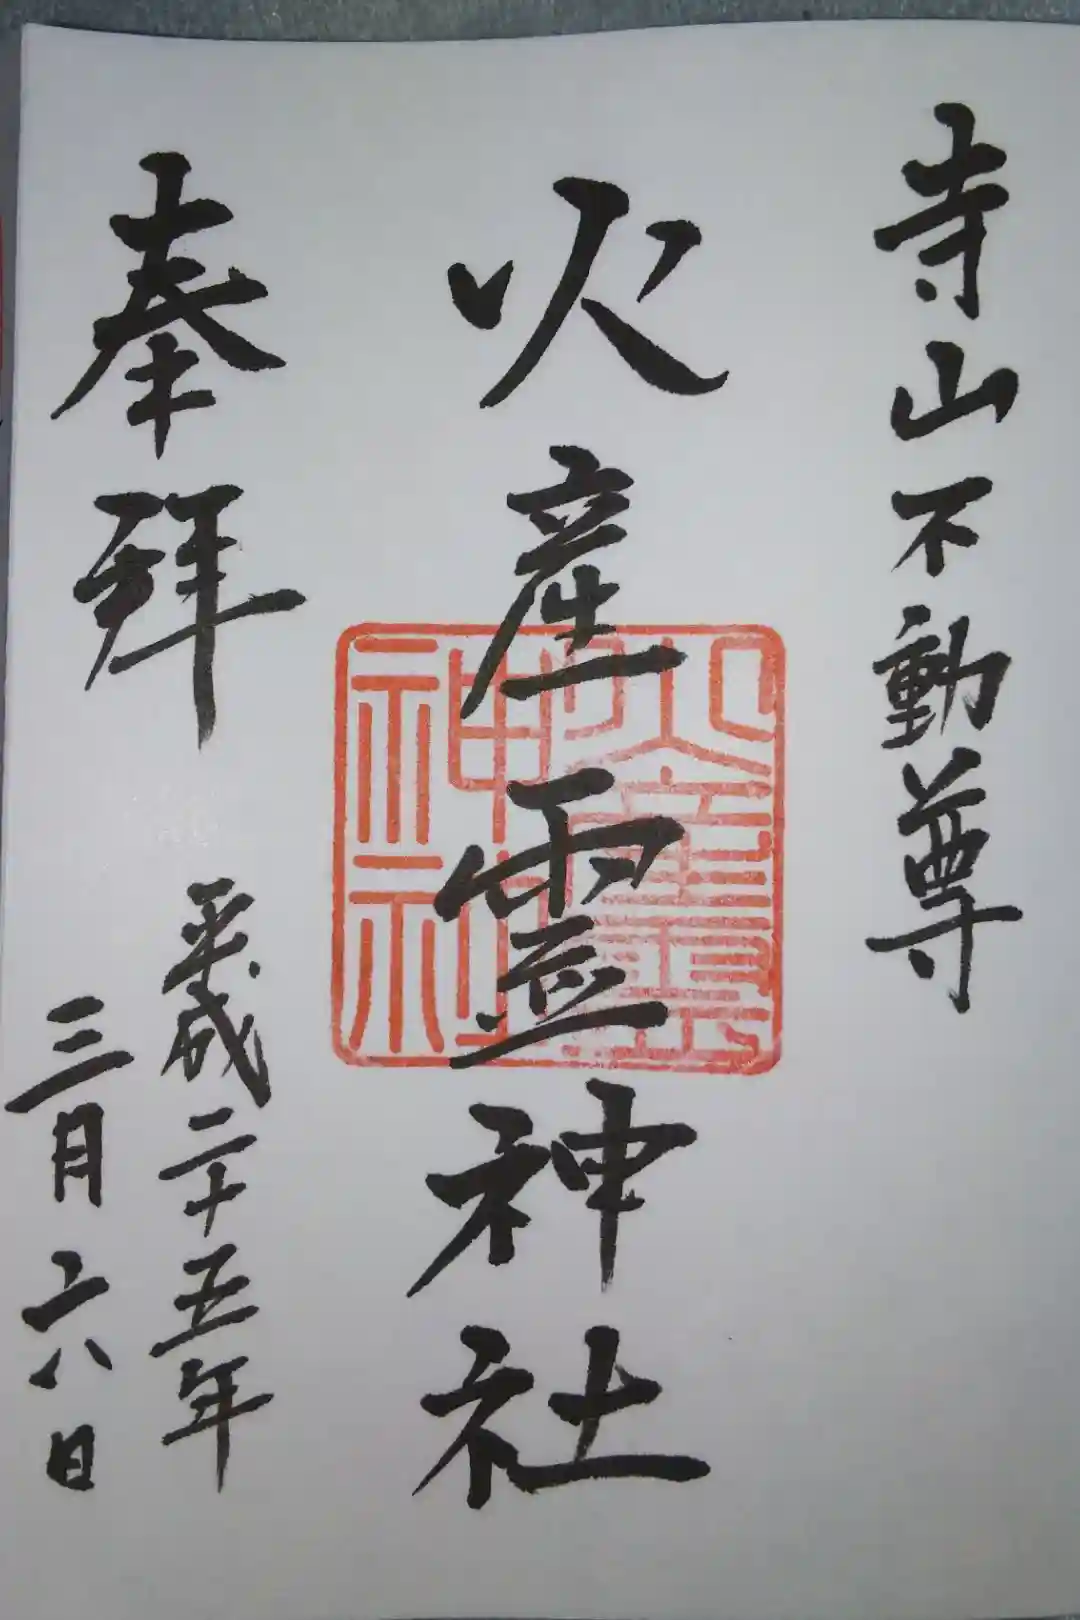 寺山不動尊
火産霊神社
火産霊
神社
奉拜
平成二十五年
三月六日